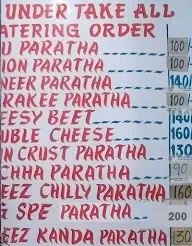 UNDER TAKE ALL
ATERING ORDER
U PARATHA 100/
ION PARATHA 100/
NEER PARATHA 140/
RAKEE PARATHA 100/
EESY BEET 140/
UBLE CHEESE 160
N CRUST PARATHA 130
CHHA PARATHA 90
EEZ CHILLY PARATHA 160
SPE PARATHA 200
EEZ KANDA PARATHA 130